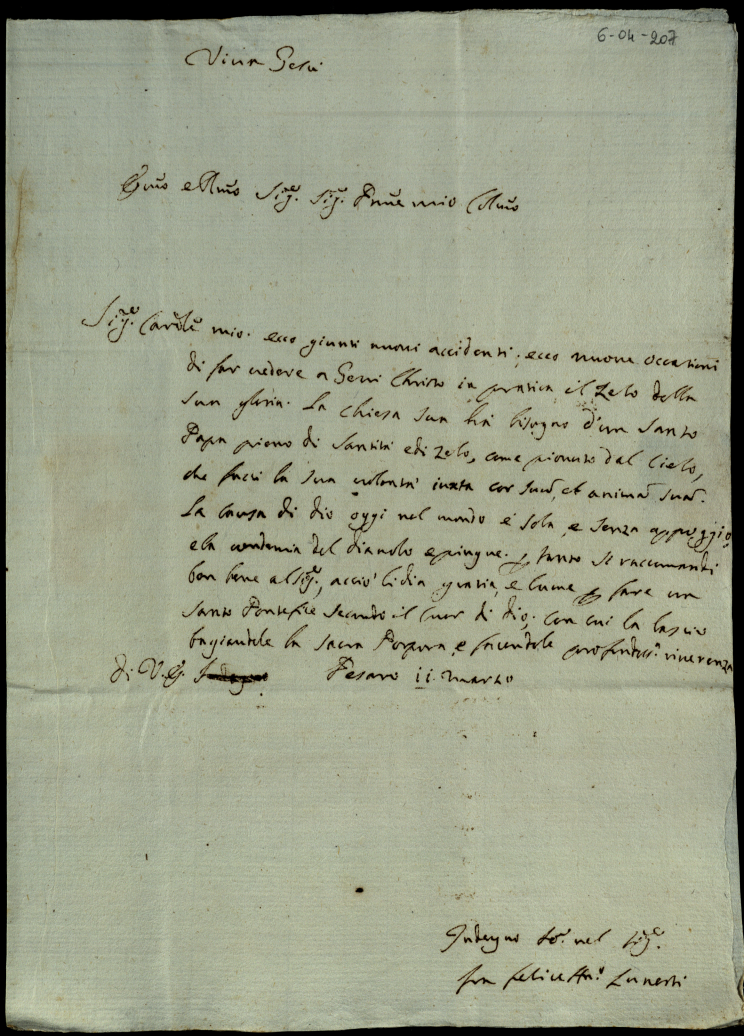 6-04-207
Viva Gesù
Emo e Rmo Sigre. Sigre. Pnue mio Colmo
Sigre. Carmo mio. ecco giunti nuovi accidenti; ecco nuove occasioni
di far vedere a Gesù Christo in pratica il zelo della
sua gloria. La Chiesa sua hà bisogno d'un Santo
Papa pieno di Santità e di zelo, come piovuto dal Cielo,
che facci la sua volontà iuxta cor suu, et anima sua.
La causa di dio oggi nel mondo è sola, e senza appoggio,
e la vendemia del diavolo è pingue. p tanto si raccomandi
ben bene al Sigre., acciò li dia grazia, e lume p fare un
Santo Pontefice secondo il Cuor di dio; con cui la lascio
bagiandole la Sacra Porpora, e facendole profondiss.a riverenza
di V. E. Pesaro 11. marzo
Indegno So.e nel Sigre.
fra felice